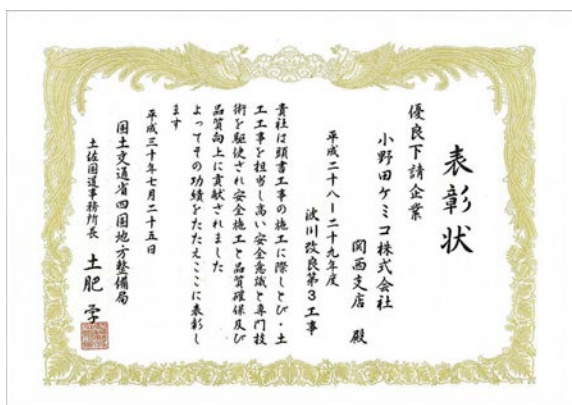 表彰状
優良下請企業
小野田ケミコ株式会社
関西支店 殿
平成二十八ー二十九年度
波川改良第3工事
貴社は頭書工事の施工に際しとび・土
工工事を担当し高い安全意識と専門技
術を駆使され安全施工と品質確保及び
品質向上に貢献されました
よってその功績をたたえここに表彰し
ます
平成三十年七月二十五日
国土交通省四国地方整備局
土佐国道事務所長 土肥 学